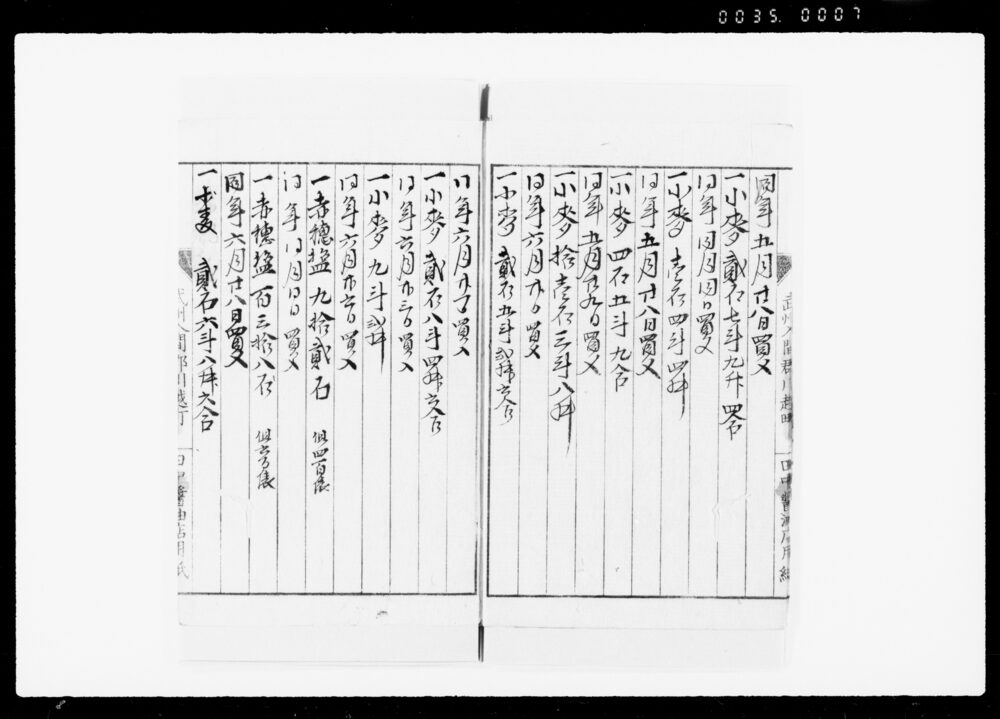 0035. 0007
武州入間郡川越町
田中醬油店用紙
同年五月廿八日買入
一小麥貳石七斗九升四合
同年同月同日買入
一小麥 壱石四斗四升
同年五月廿八日買入
一小麥 四石五斗九合
同年五月廿九日買入
一小麥拾壱石三斗八升
同年六月 日買入
一小麥 貳石五斗 升六合
同年六月廿 日買入
一小麥 貳石八斗四升六合
同年六月廿三日買入
一小麥 九斗 升
同年六月廿六日買入
一赤穂塩 九拾貳石 但四百俵
同年同月同日買入
一赤穂塩百三拾八石 但六百俵
同年六月廿八日買入
一小麦 貳石六斗八升六合
武州入間郡川越町
田中醬油店用紙